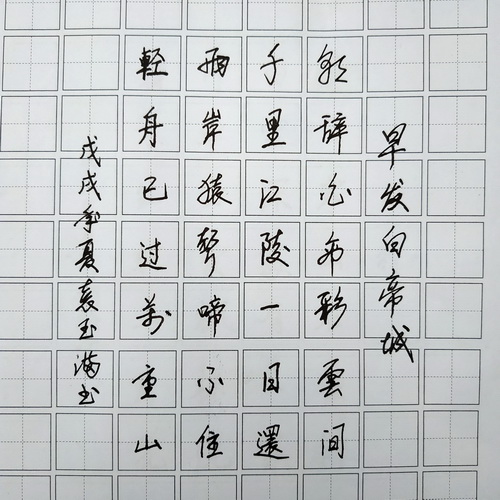 早发白帝城
朝辞白帝彩雲间
千里江陵一日還
兩岸猿聲啼不住
輕舟已过萬重山
戊戌年夏袁玉满书